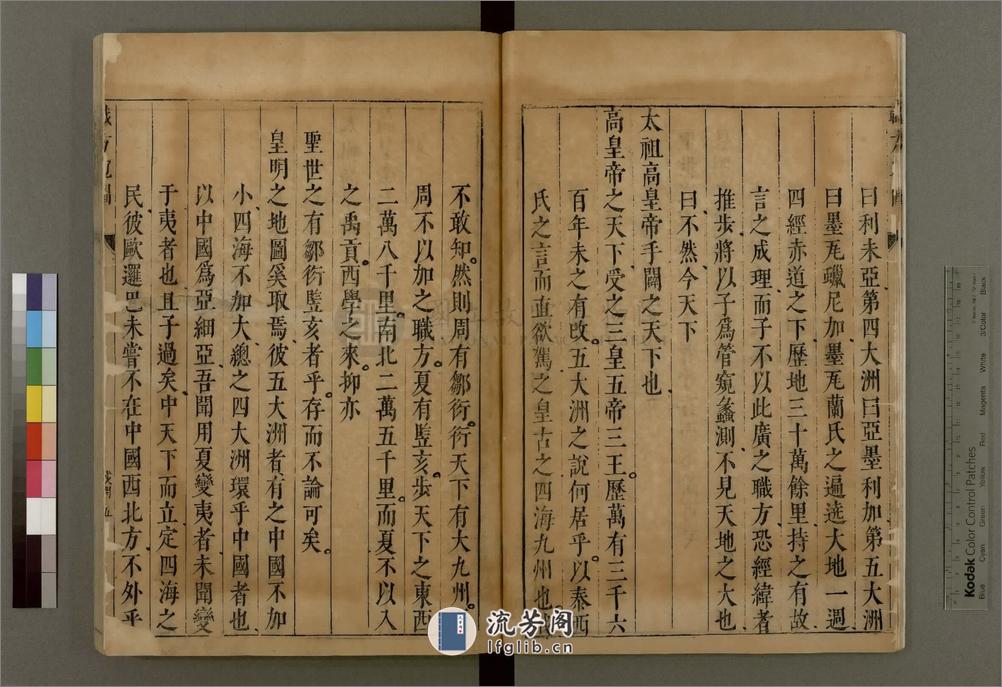 曰利未亞第四大洲曰亞墨利加第五大洲
曰墨瓦蠟尼加墨瓦蘭氏之遍遶大地一週
四經赤道之下歷地三十萬餘里持之有故
言之成理而子不以此廣之職方恐經緯者
推步將以子為管窺蠡測不見天地之大也
曰不然今天下
太祖高皇帝手闢之天下也
高皇帝之天下受之三皇五帝三王歷萬有三千六
百年未之有改五大洲之說何居乎以泰西
氏之言而直欲駕之皇古之四海九州也
不敢知然則周有鄒衍衍天下有大九州
周不以加之職方夏有豎亥步天下之東西
二萬八千里南北二萬五千里而夏不以入
之禹貢西學之來抑亦
聖世之有鄒衍豎亥者乎存而不論可矣
皇明之地圖奚取焉彼五大洲者有之中國不加
小四海不加大總之四大洲環乎中國者也
以中國為亞細亞吾聞用夏變夷者未聞變
于夷者也且子過矣中天下而立定四海之
民彼歐邏巴未嘗不在中國西北方不外乎
流芳阁
lfglib.cn
Kodak Color Control Patches
Blue
Cyan
Green
Yellow
Red
Magenta
White
3/Color
Black